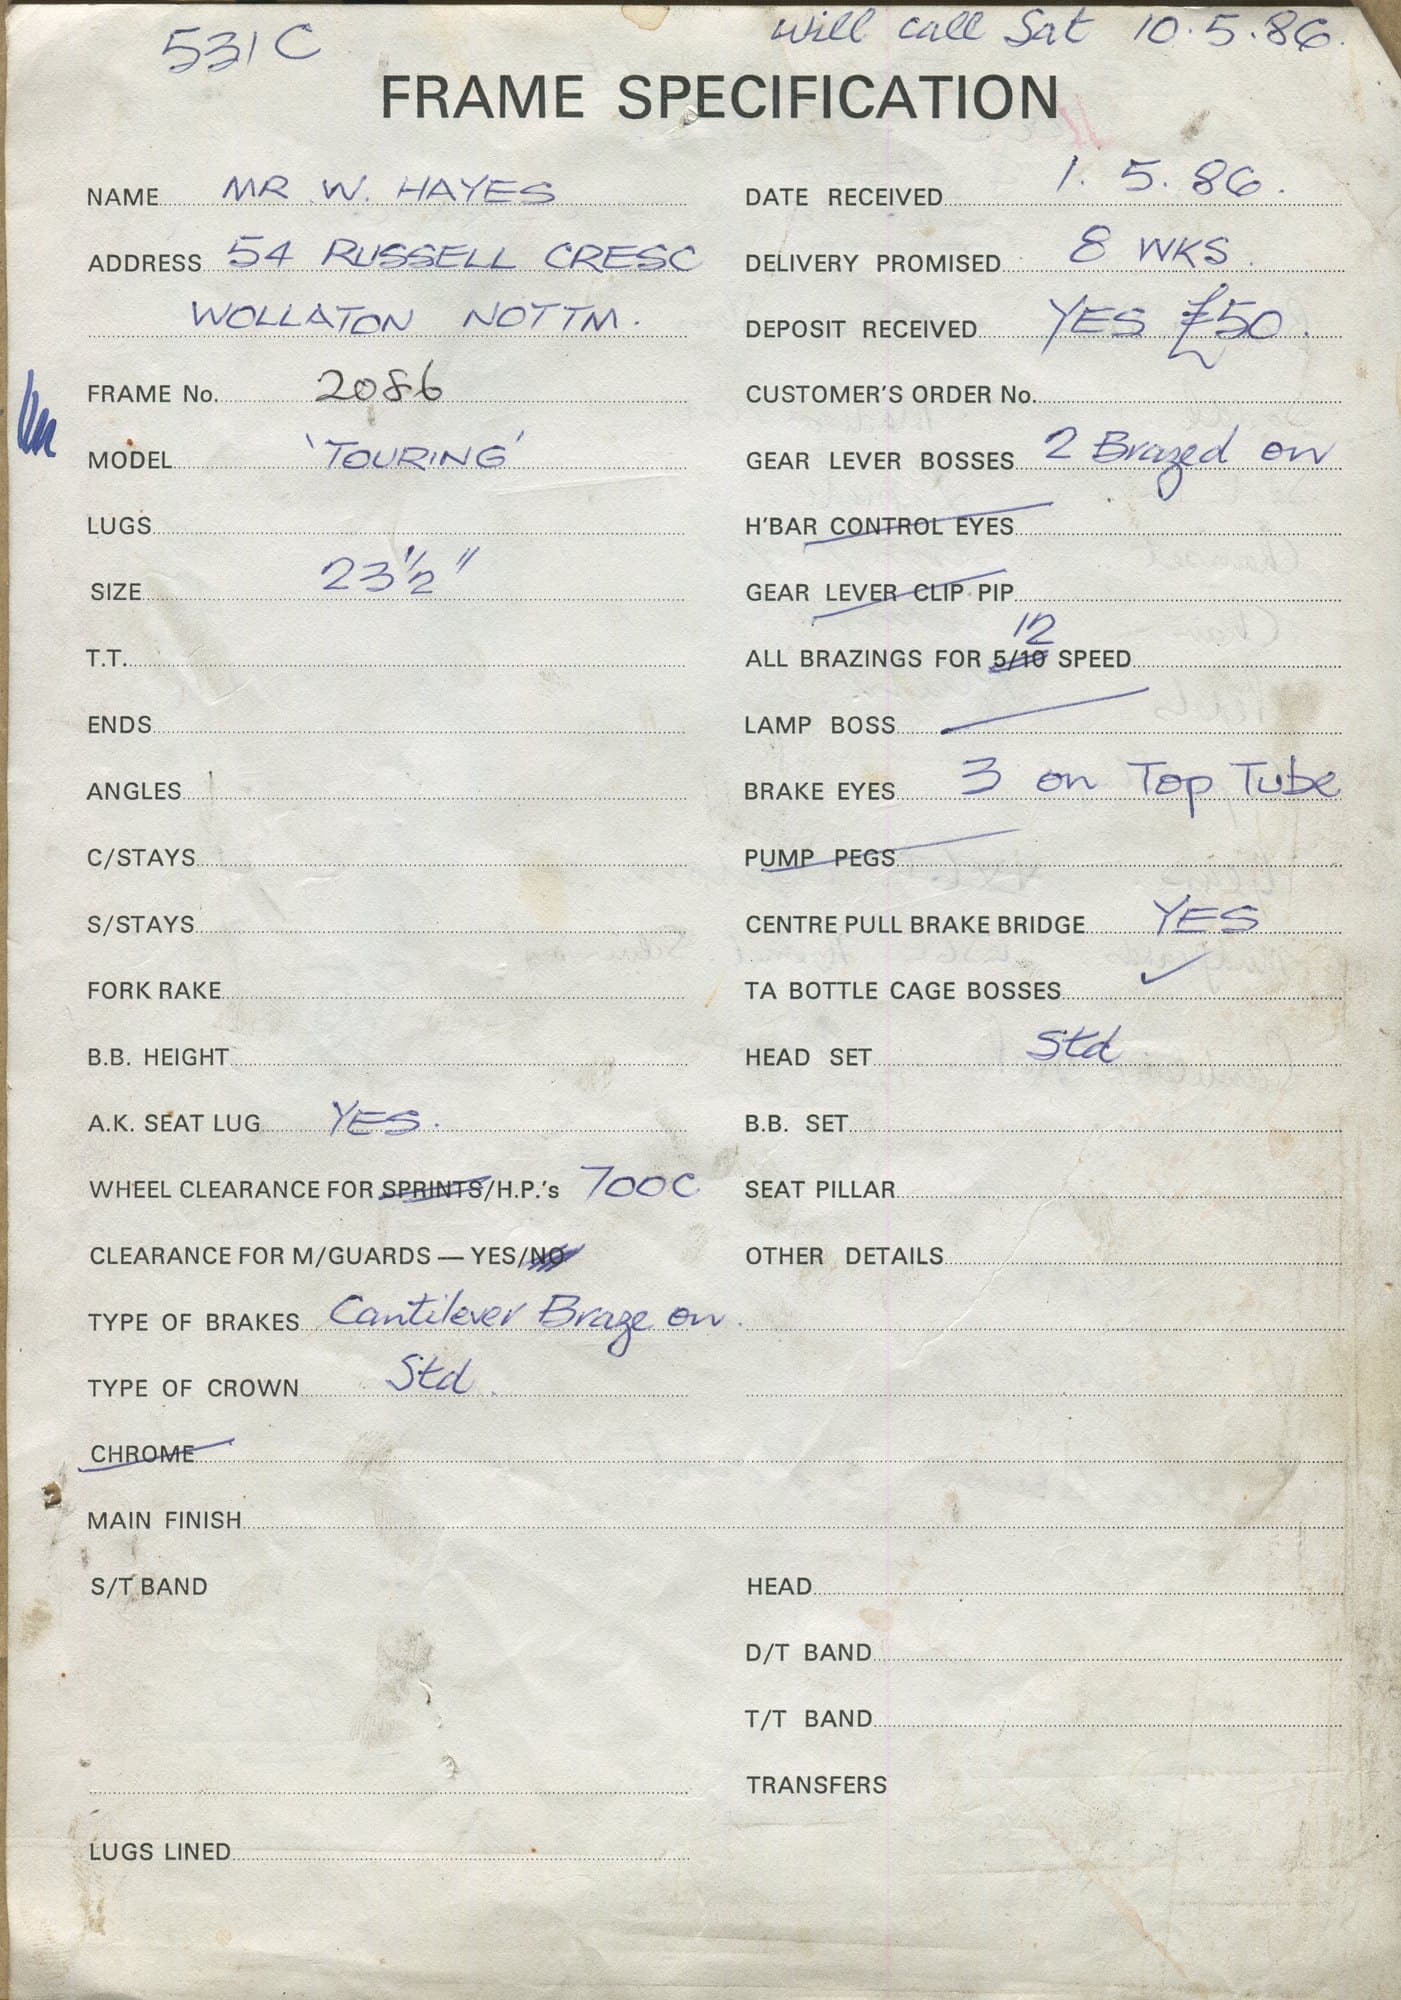 531C
will call Sat 10.5.86.
FRAME SPECIFICATION
NAME MR W. HAYES
ADDRESS 54 RUSSELL CRESC
WOLLATON NOTTM.
FRAME No. 2086
MODEL 'TOURING'
LUGS
SIZE 23 1/2"
T.T.
ENDS
ANGLES
C/STAYS
S/STAYS
FORK RAKE
B.B. HEIGHT
A.K. SEAT LUG YES.
WHEEL CLEARANCE FOR SPRINTS/H.P.'s 700C
CLEARANCE FOR M/GUARDS — YES/NO
TYPE OF BRAKES Cantilever Braze on.
TYPE OF CROWN Std.
CHROME
MAIN FINISH
S/T BAND
LUGS LINED
DATE RECEIVED 1. 5. 86.
DELIVERY PROMISED 8 WKS.
DEPOSIT RECEIVED YES £50.
CUSTOMER'S ORDER No.
GEAR LEVER BOSSES 2 Brazed on
H'BAR CONTROL EYES
GEAR LEVER CLIP PIP
12
ALL BRAZINGS FOR 5/10 SPEED
LAMP BOSS
BRAKE EYES 3 on Top Tube
PUMP PEGS
CENTRE PULL BRAKE BRIDGE YES
TA BOTTLE CAGE BOSSES ✓
HEAD SET Std.
B.B. SET
SEAT PILLAR
OTHER DETAILS
HEAD
D/T BAND
T/T BAND
TRANSFERS